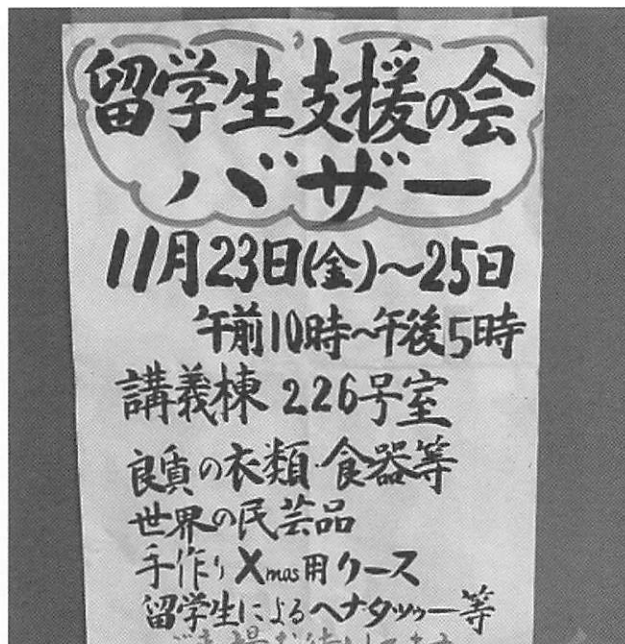 留学生支援の会
バザー
11月23日(金)〜25日
午前10時〜午後5時
講義棟 226号室
良質の衣類・食器等
世界の民芸品
手作りXmas用リース
留学生によるヘナタッゥー等